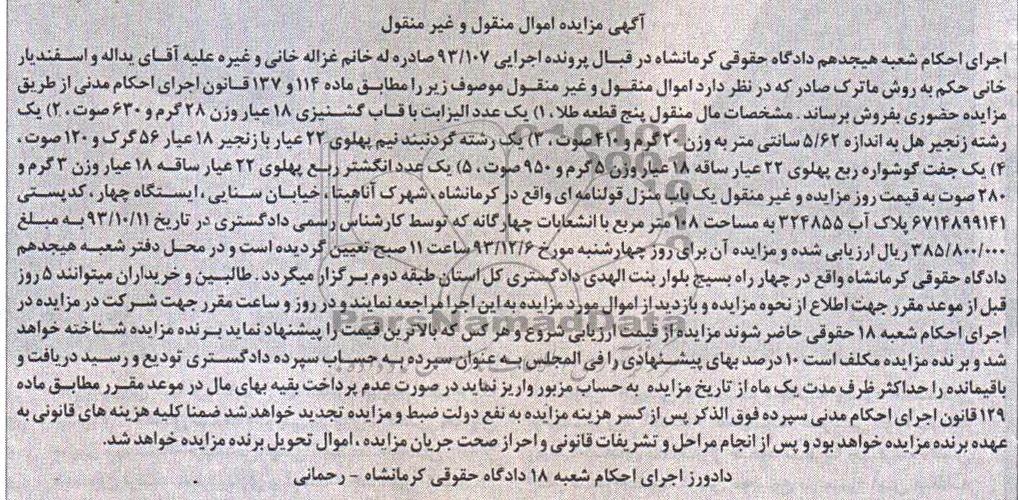 آگهی مزایده اموال منقول و غیر منقول
اجرای احکام شعبه هیجدهم دادگاه حقوقی کرمانشاه در قبال پرونده اجرایی ۹۳/۱۰۷ صادره له خانم غزاله خانی و غیره علیه آقای یداله و اسفندیار
خانی حکم به روش ماترک صادر که در نظر دارد اموال منقول و غیر منقول موصوف زیر را مطابق ماده ۱۱۴ و ۱۳۷ قانون اجرای احکام مدنی از طریق
مزایده حضوری بفروش برساند . مشخصات مال منقول پنج قطعه طلا ، ۱) یک عدد الیزابت با قاب گشنیزی ۱۸ عیار وزن ۲۸ گرم و ۶۳۰ صوت ، ۲) یک
رشته زنجیر هل به اندازه ۵/۶۲ سانتی متر به وزن ۲۰ گرم و ۴۱۰ صوت ، ۳) یک رشته گردنبند نیم پهلوی ۲۲ عیار با زنجیر ۱۸ عیار ۵۶ گرک و ۱۲۰ صوت ،
۴) یک جفت گوشواره ربع پهلوی ۲۲ عیار ساقه ۱۸ عیار وزن ۵ گرم و ۹۵۰ صوت ، ۵) یک عدد انگشتر ربع پهلوی ۲۲ عیار ساقه ۱۸ عیار وزن ۳ گرم و
۲۸۰ صوت به قیمت روز مزایده و غیر منقول یک باب منزل قولنامه ای واقع در کرمانشاه ، شهرک آناهیتا ، خیابان سنایی ، ایستگاه چهار ، کدپستی
۶۷۱۴۸۹۹۱۴۱ پلاک آب ۳۲۴۸۵۵ به مساحت ۱۰۸ متر مربع با انشعابات چهارگانه که توسط کارشناس رسمی دادگستری در تاریخ ۹۳/۱۰/۱۱ به مبلغ
۳۸۵/۸۰۰/۰۰۰ ریال ارزیابی شده و مزایده آن برای روز چهارشنبه مورخ ۹۳/۱۲/۶ ساعت ۱۱ صبح تعیین گردیده است و در محل دفتر شعبه هیجدهم
دادگاه حقوقی کرمانشاه واقع در چهار راه بسیج بلوار بنت الهدی دادگستری کل استان طبقه دوم برگزار میگردد . طالبین و خریداران میتوانند ۵ روز
قبل از موعد مقرر جهت اطلاع از نحوه مزایده و بازدید از اموال مورد مزایده به این اجرا مراجعه نمایند و در روز و ساعت مقرر جهت شرکت در مزایده در
اجرای احکام شعبه ۱۸ حقوقی حاضر شوند مزایده از قیمت ارزیابی شروع و هر کس که بالاترین قیمت را پیشنهاد نماید برنده مزایده شناخته خواهد
شد و برنده مزایده مکلف است ۱۰ درصد بهای پیشنهادی را فی المجلس به عنوان سپرده به حساب سپرده دادگستری تودیع و رسید دریافت و
باقیمانده را حداکثر ظرف مدت یک ماه از تاریخ مزایده به حساب مزبور واریز نماید در صورت عدم پرداخت بقیه بهای مال در موعد مقرر مطابق ماده
۱۲۹ قانون اجرای احکام مدنی سپرده فوق الذکر پس از کسر هزینه مزایده به نفع دولت ضبط و مزایده تجدید خواهد شد ضمنا کلیه هزینه های قانونی به
عهده برنده مزایده خواهد بود و پس از انجام مراحل و تشریفات قانونی و احراز صحت جریان مزایده ، اموال تحویل برنده مزایده خواهد شد.
دادورز اجرای احکام شعبه ۱۸ دادگاه حقوقی کرمانشاه - رحمانی
ParsNamadData